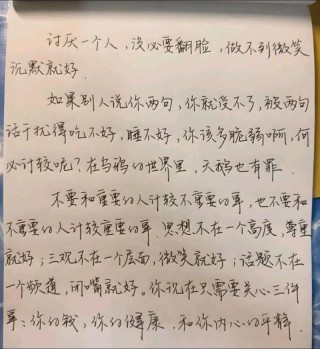 讨厌一个人，没必要翻脸，做不到微笑
沉默就好．
如果别人说你两句，你就受不了，被两句
话干扰得吃不好，睡不好，你该多脆弱啊，何
必计较呢？在乌鸦的世界里，天鹅也有罪．
不要和重要的人计较不重要的事，也不要和
不重要的人计较重要的事．思想不在一个高度，尊重
就好；三观不在一个层面，微笑就好；话题不在
一个频道，闭嘴就好。你现在只需要关心三件
事：你的钱，你的健康，和你内心的平静．